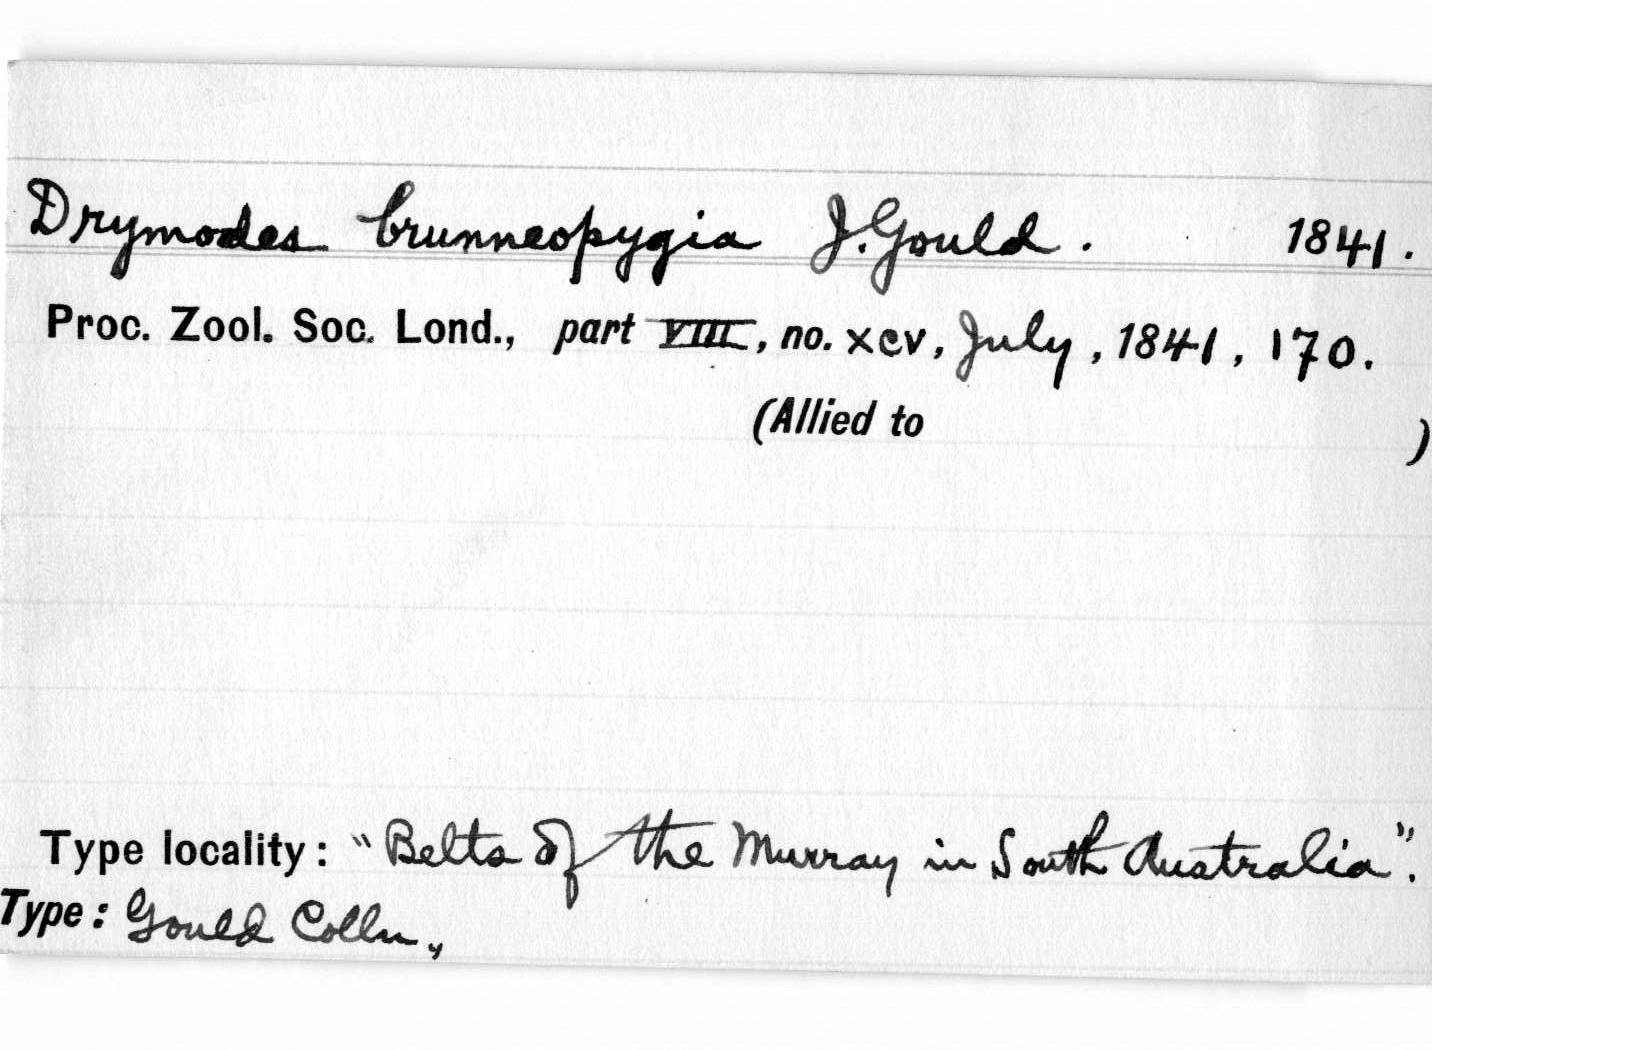 Drymodes brunneopygia J. Gould. 1841.
Proc. Zool. Soc. Lond., part VIII, no. xcv, July, 1841, 170.
(Allied to )
Type locality: "Belts of the Murray in South Australia".
Type: Gould Colln.,